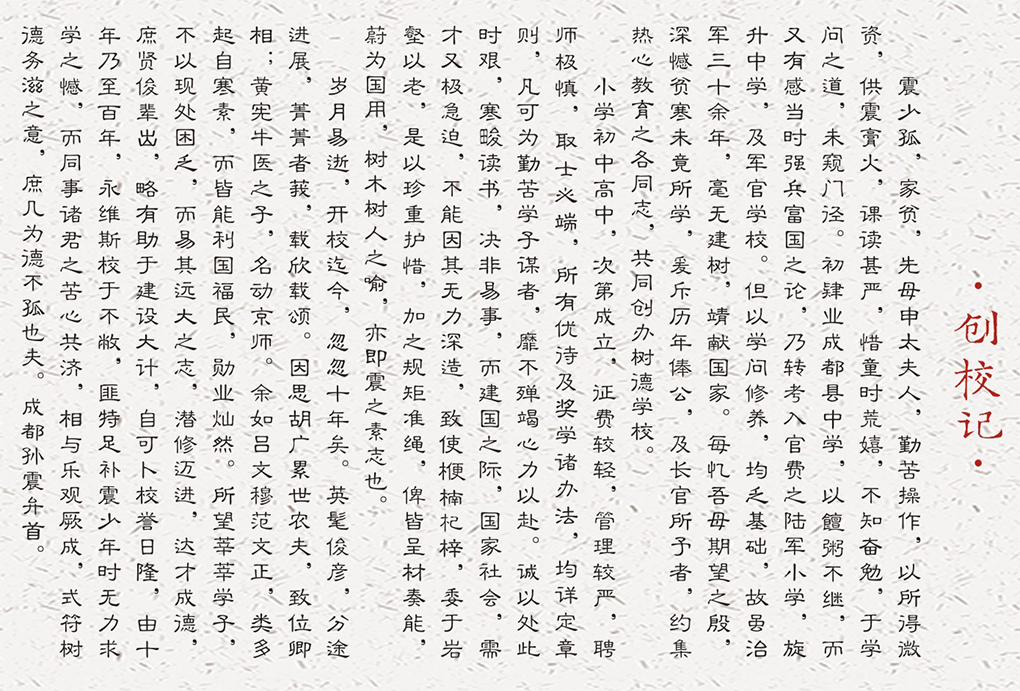 ·创校记·
震少孤，家贫，先母申太夫人，勤苦操作，以所得微
资，供震膏火，课读甚严，惜童时荒嬉，不知奋勉，于学
问之道，未窥门径。初肄业成都县中学，以饘粥不继，而
又有感当时强兵富国之论，乃转考入官费之陆军小学，旋
升中学，及军官学校。但以学问修养，均乏基础，故虽治
军三十余年，毫无建树，靖献国家。每忆吾母期望之殷，
深憾贫寒未竟所学，爰斥历年俸公，及长官所予者，约集
热心教育之各同志，共同创办树德学校。
小学初中高中，次第成立，证费较轻，管理较严，聘
师极慎，取士必端，所有优待及奖学诸办法，均详定章
则，凡可为勤苦学子谋者，靡不殚竭心力以赴。诚以处此
时艰，寒畯读书，决非易事，而建国之际，国家社会，需
才又极急迫，不能因其无力深造，致使楩楠杞梓，委于岩
壑以老，是以珍重护惜，加之规矩准绳，俾皆呈材奏能，
蔚为国用，树木树人之喻，亦即震之素志也。
岁月易逝，开校迄今，忽忽十年矣。英髦俊彦，分途
进展，菁菁者莪，载欣载颂。因思胡广累世农夫，致位卿
相；黄宪牛医之子，名动京师。余如吕文穆范文正，类多
起自寒素，而皆能利国福民，勋业灿然。所望莘莘学子，
不以现处困乏，而易其远大之志，潜修迈进，达才成德，
庶贤俊辈出，略有助于建设大计，自可卜校誉日隆，由十
年乃至百年，永维斯校于不敝，匪特足补震少年时无力求
学之憾，而同事诸君之苦心共济，相与乐观厥成，式符树
德务滋之意，庶几为德不孤也夫。成都孙震弁首。